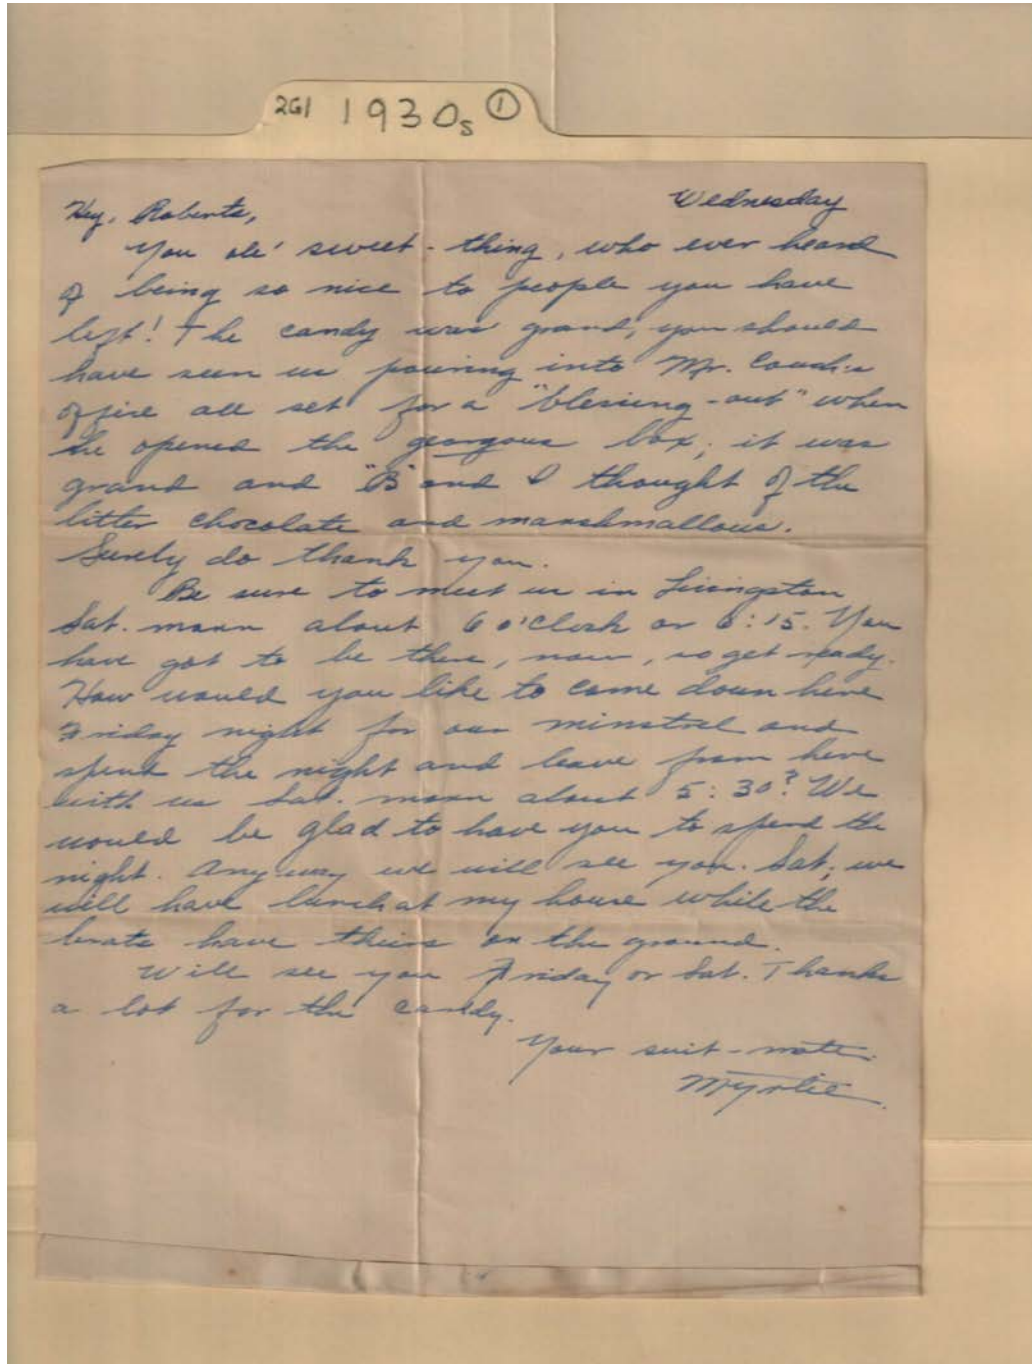 2G1 1930s ①
Wednesday
Hey, Roberta,
You ole' sweet-thing, who ever heard
of being so nice to people you have
left! The candy was grand, you should
have seen us pouring into Mr. Couch's
office all set for a "blessing-out" when
he opened the georgous box; it was
grand and "B" and I thought of the
bitter chocolate and marshmallows.
Surely do thank you.
Be sure to meet us in Livingston
Sat. morn about 6 o'clock or 6:15. You
have got to be there, now, so get ready.
How would you like to come down here
Friday night for our minstrel and
spend the night and leave from here
with us Sat. morn about 5:30? We
would be glad to have you to spend the
night. Anyway we will see you Sat; we
will have lunch at my house while the
brats have theirs on the ground.
Will see you Friday or Sat. Thanks
a lot for the candy.
Your suit-mate.
Myrtie.